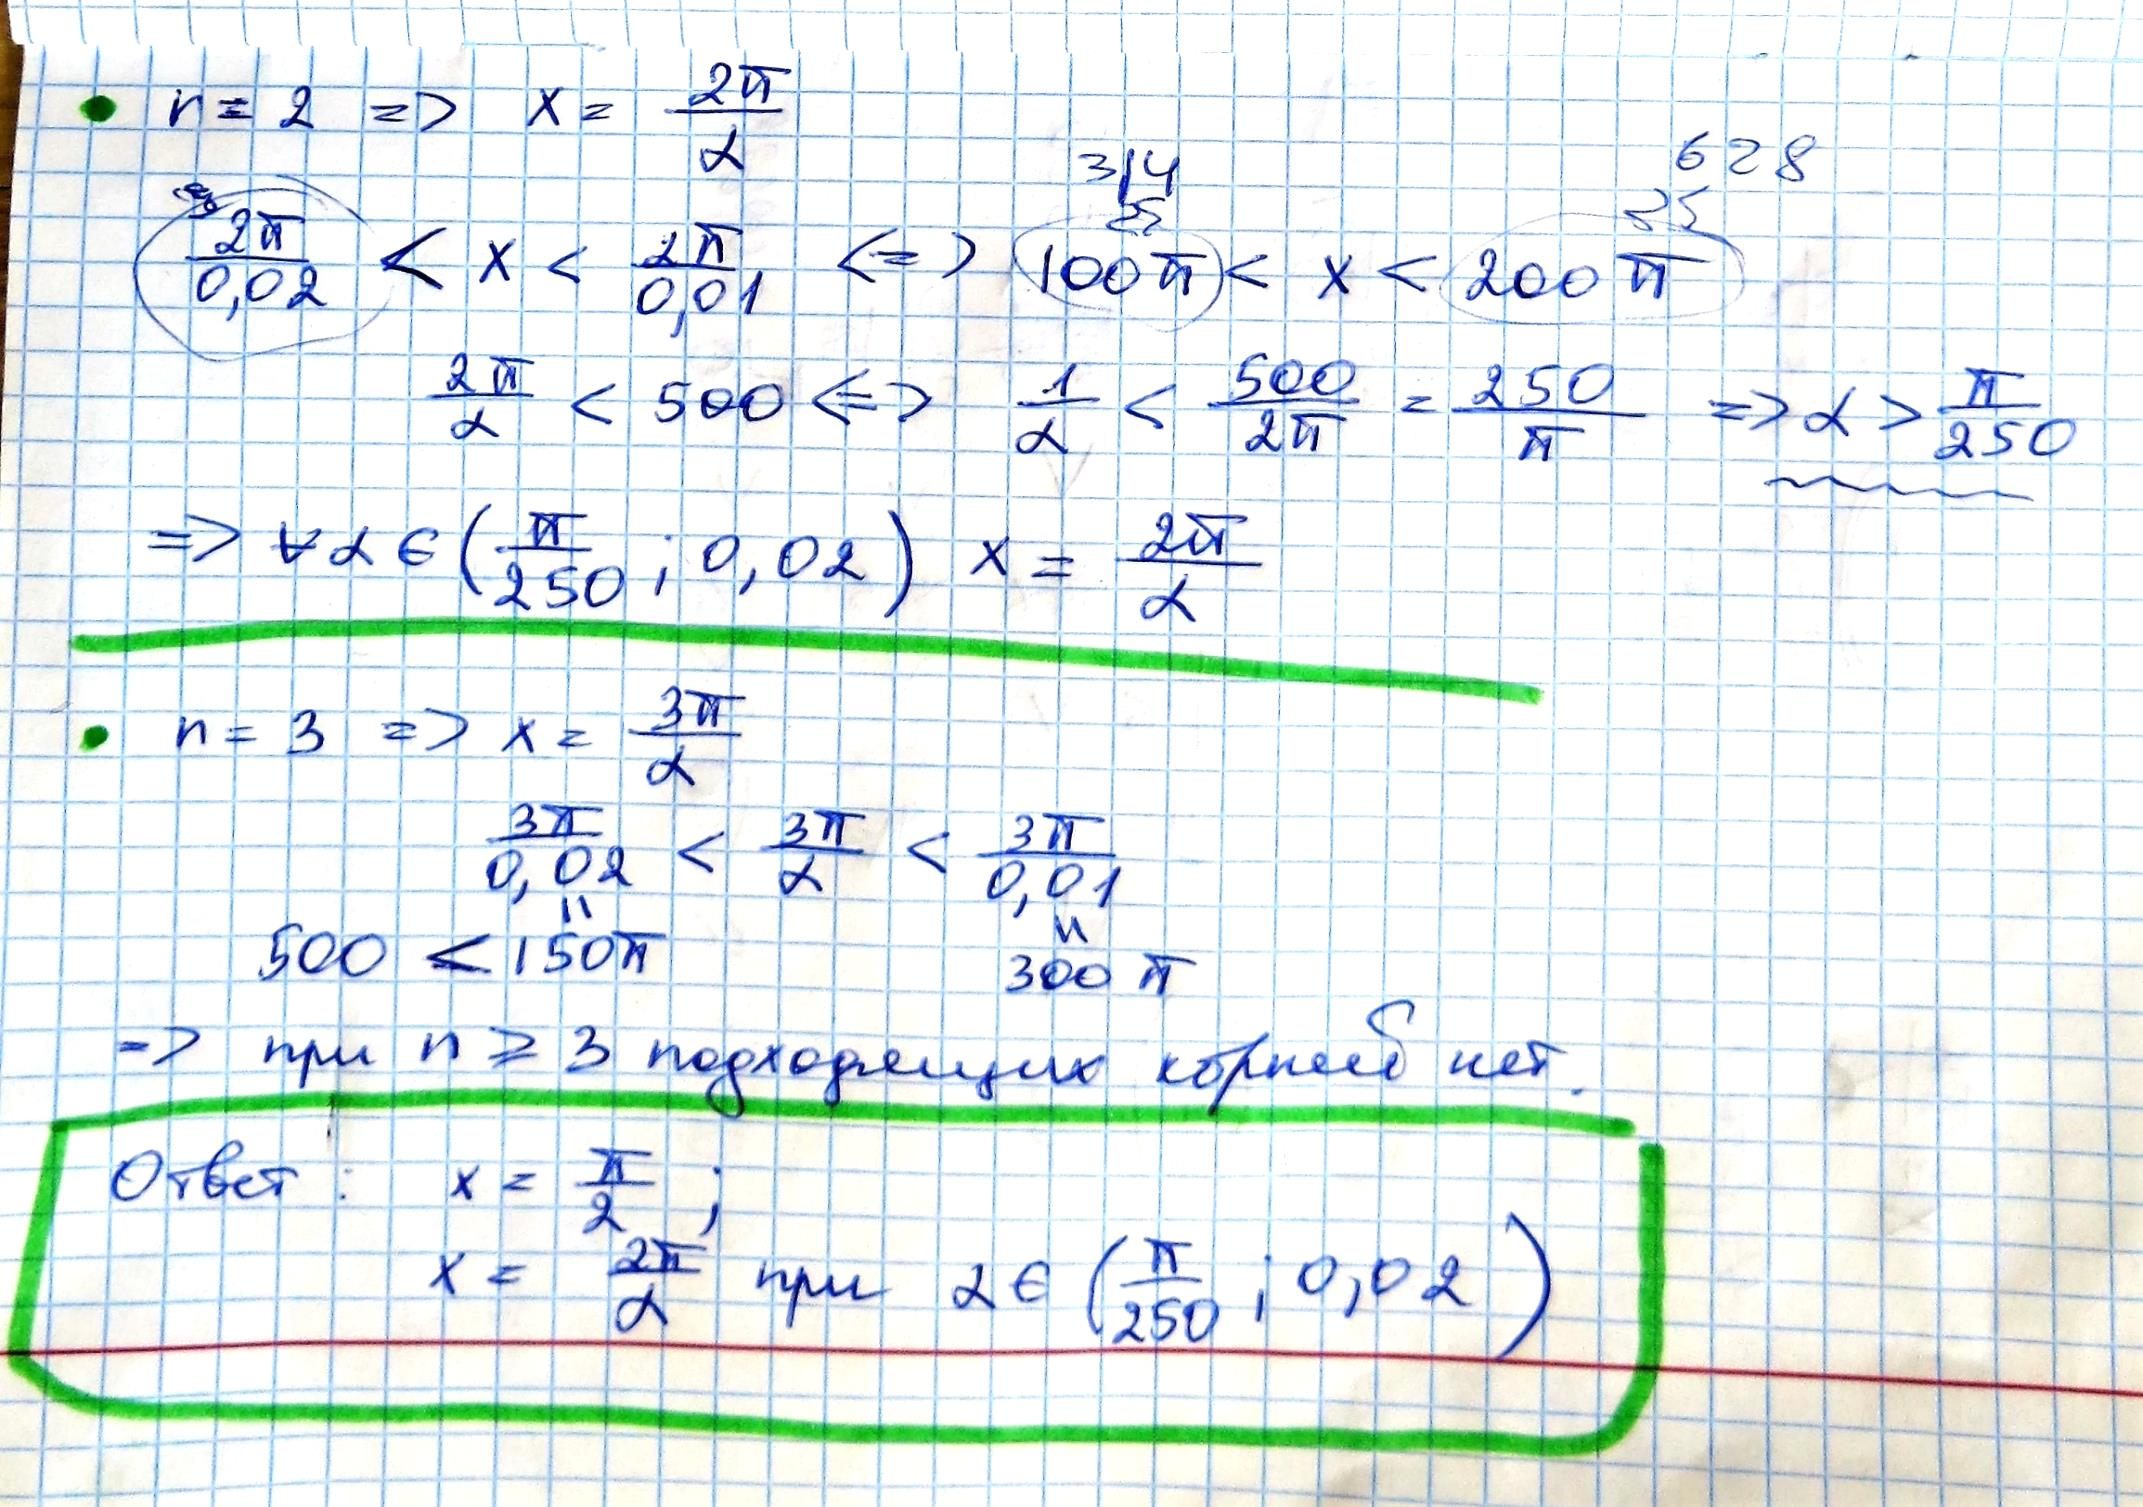 • n = 2 => x = 2π/α
314 628
≈ ≈
2π/0,02 < x < 2π/0,01 <=> 100π < x < 200π
2π/α < 500 <=> 1/α < 500/2π = 250/π => α > π/250
=> ∀α ∈ (π/250 ; 0,02) x = 2π/α
• n = 3 => x = 3π/α
3π/0,02 < 3π/α < 3π/0,01
= =
500 < 150π 300π
=> при n ≥ 3 подходящих корней нет.
Ответ : x = π/2 ;
x = 2π/α при α ∈ (π/250 ; 0,02)